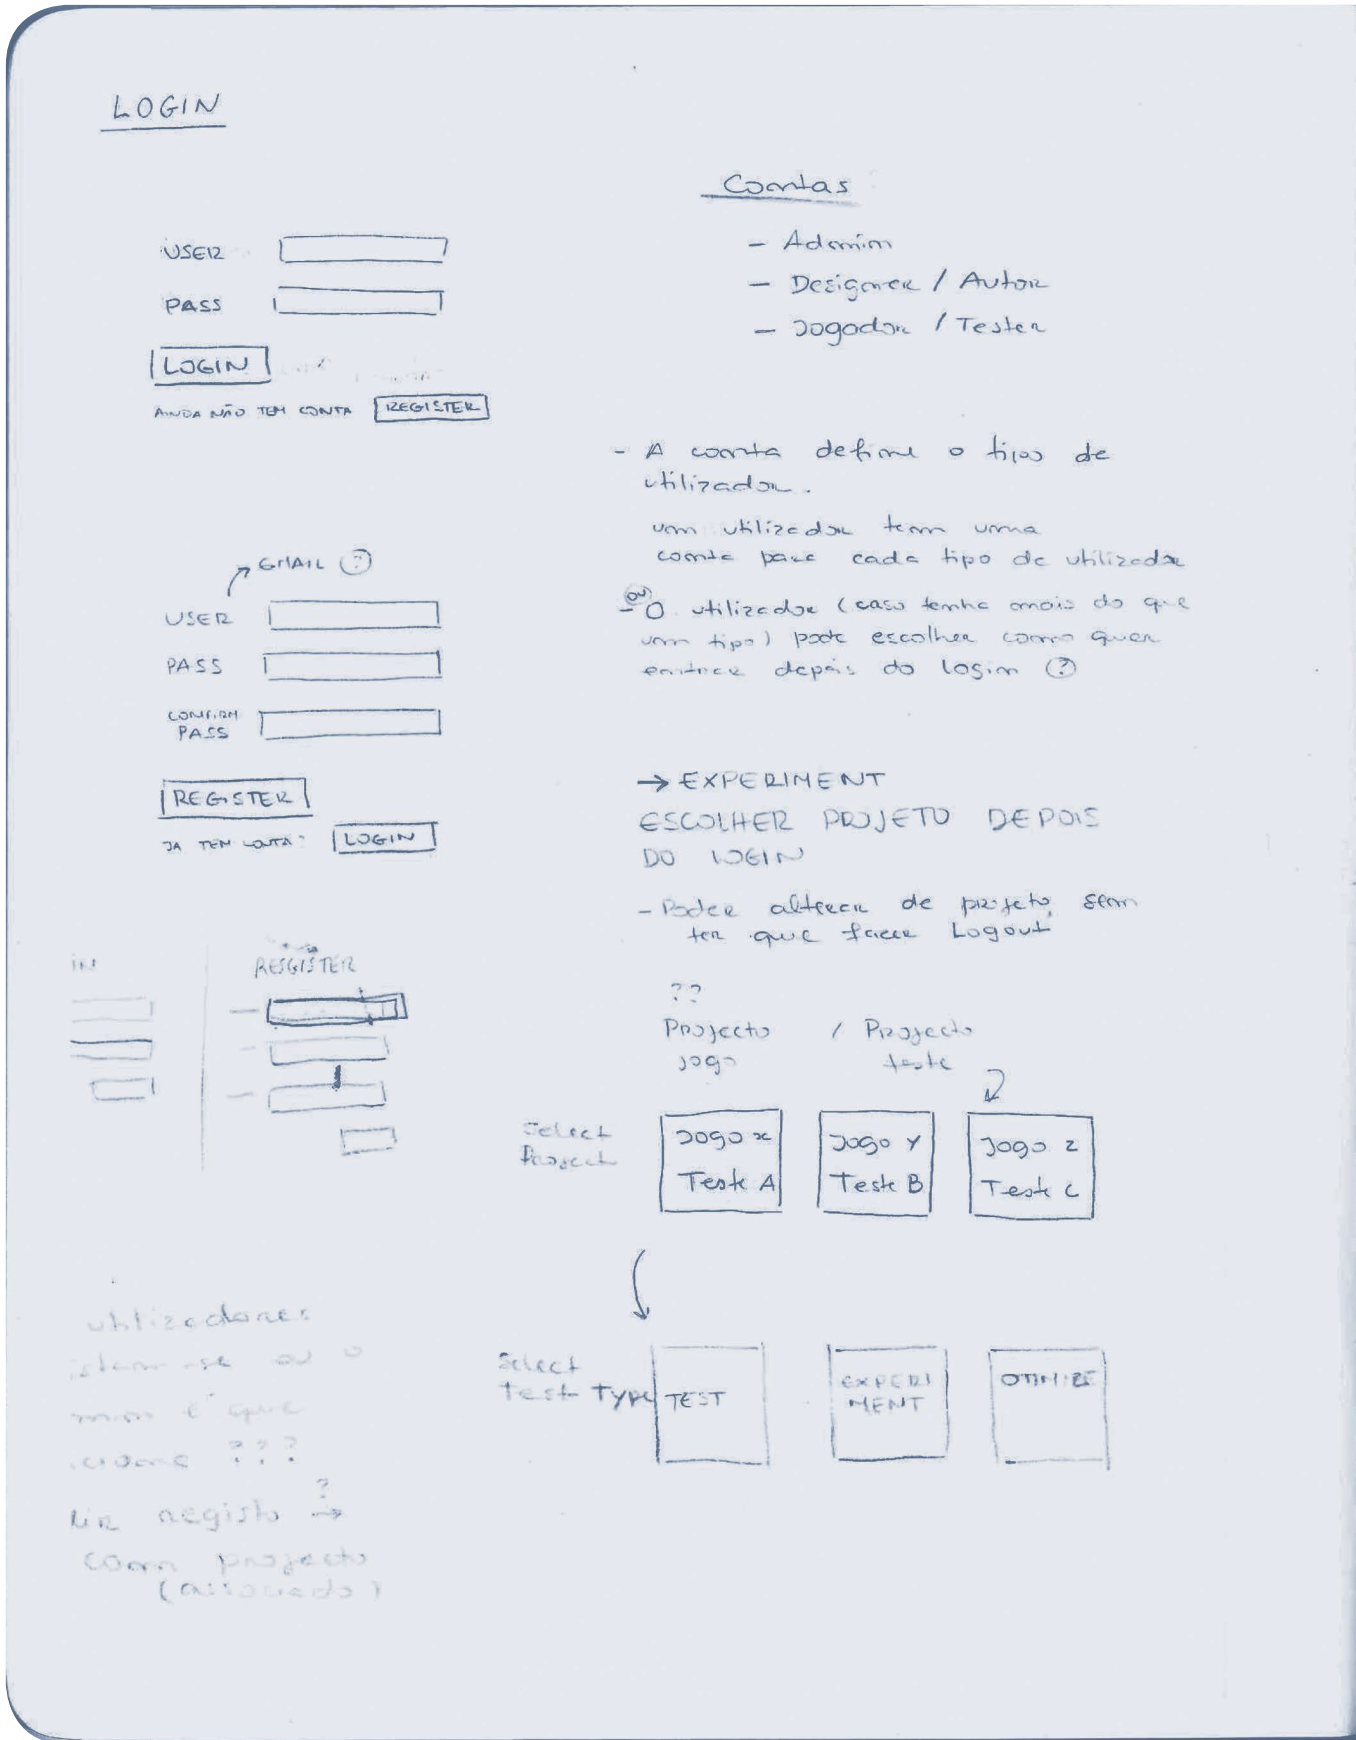 LOGIN
USER
PASS
LOGIN
AINDA NÃO TEM CONTA REGISTER
GMAIL ?
USER
PASS
CONFIRM
PASS
REGISTER
JA TEM CONTA? LOGIN
IN
RESGISTER
utilizadores
-se ou o
é que
???
registo ?
com projecto
(associado)
Contas
- Admin
- Designer / Autor
- Jogador / Tester
- A conta define o tipo de
utilizador.
um utilizador tem uma
conta para cada tipo de utilizador
ou
- O utilizador (caso tenha mais do que
um tipo) pode escolher como quer
entrar depois do login ?
→ EXPERIMENT
ESCOLHER PROJETO DEPOIS
DO LOGIN
- Poder alterar de projeto, sem
ter que fazer Logout
??
Projecto / Projecto
jogo teste
Select
Project
Jogo x
Teste A
Jogo Y
Teste B
Jogo Z
Teste C
Select
Test Type
TEST
EXPERI
MENT
OTIMIZE